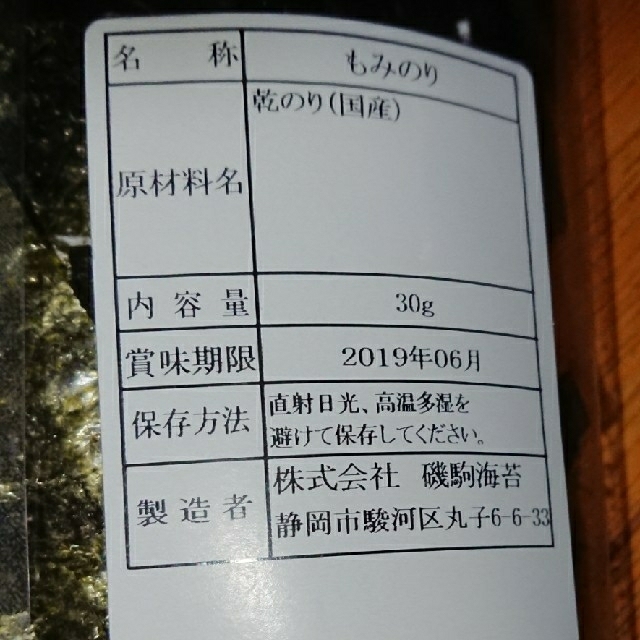 名称 もみのり
原材料名 乾のり(国産)
内容量 30g
賞味期限 2019年06月
保存方法 直射日光、高温多湿を
避けて保存してください。
製造者 株式会社 磯駒海苔
静岡市駿河区丸子6-6-33